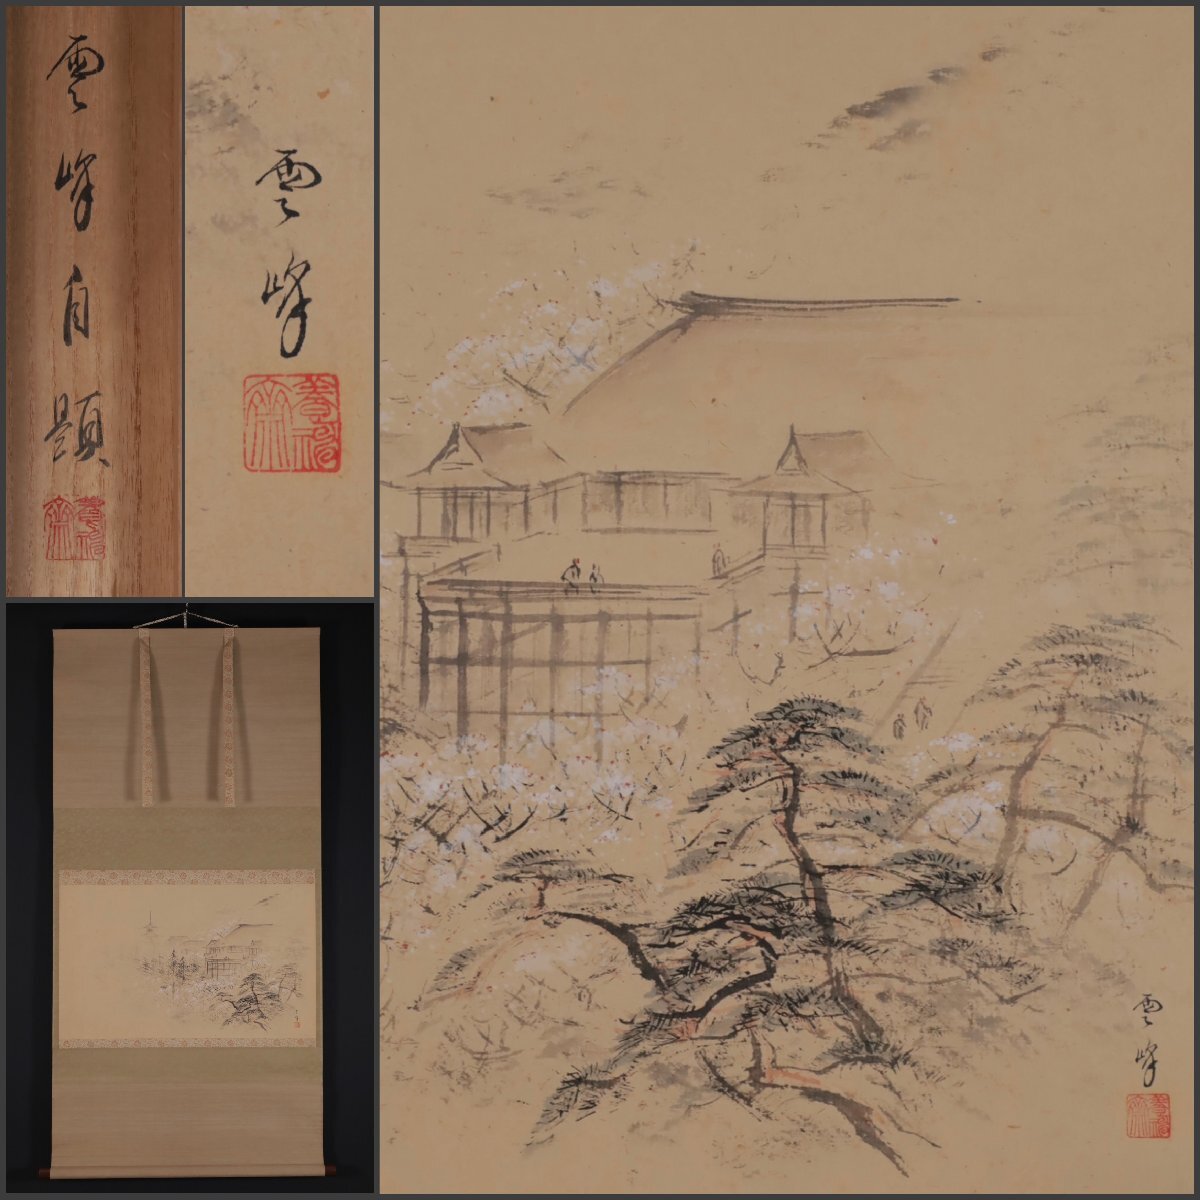 雲峰自題
雲峰
雲峰